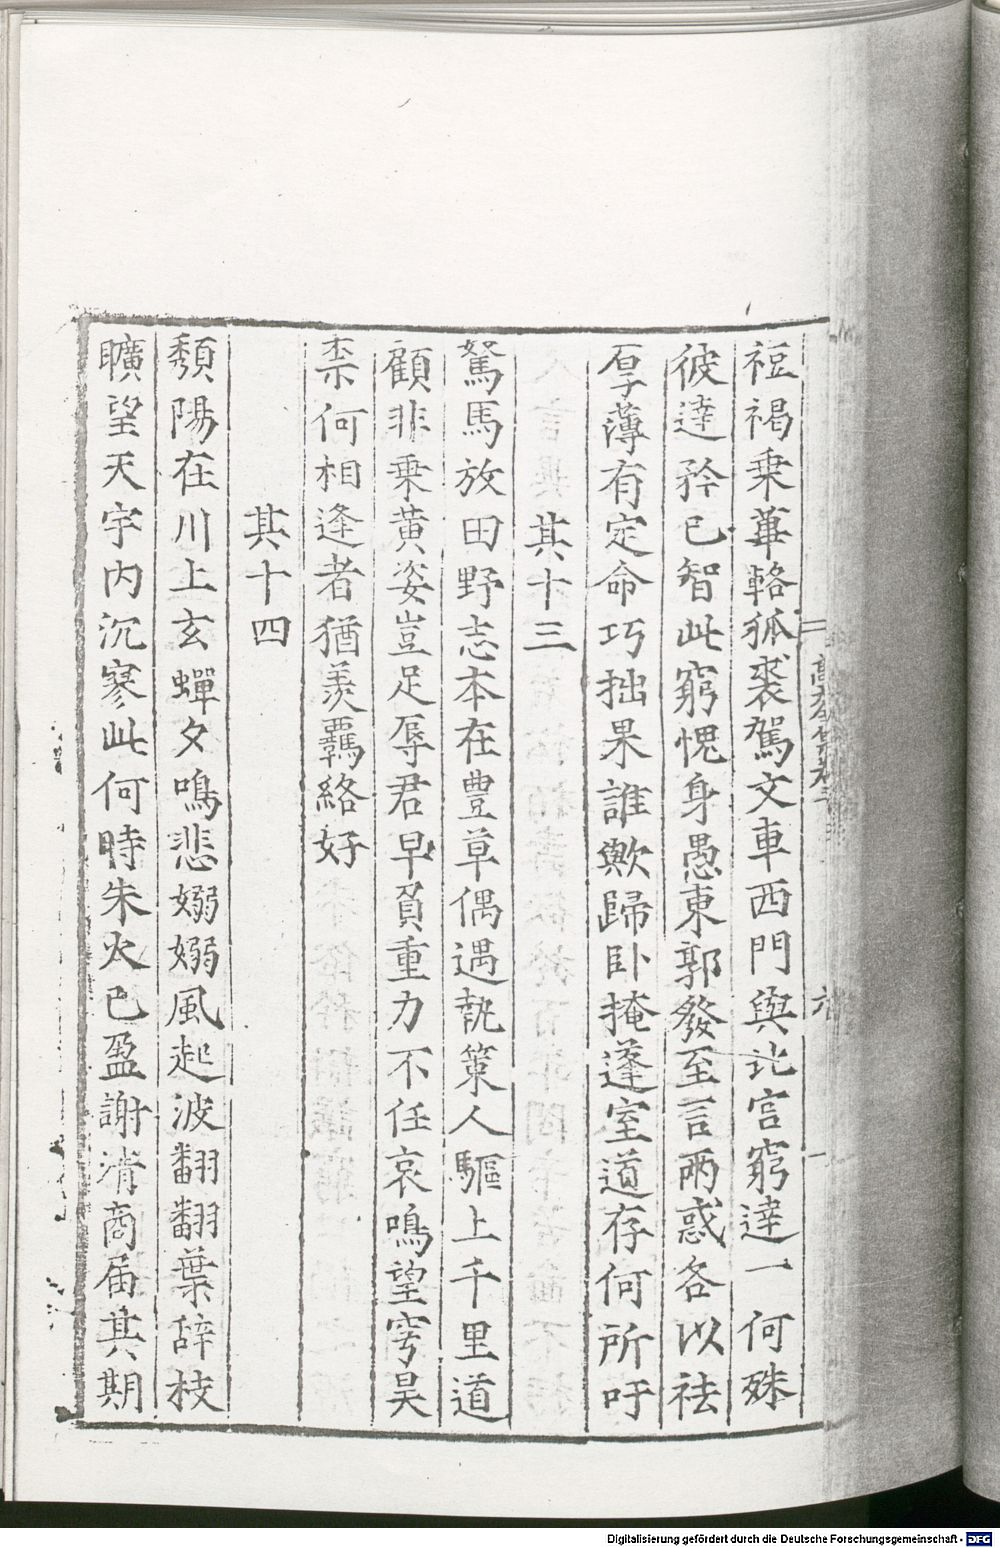 裋褐乗華輅狐裘駕文車西門與北宮窮達一何殊
彼達矜已智此窮愧身愚東郭發至言兩惑各以祛
厚薄有定命巧拙果誰歟歸卧掩蓬室道存何所吁
其十三
駑馬放田野志本在豊草偶遇執策人驅上千里道
顧非乗黄姿豈足辱君早負重力不任哀鳴望穹昊
柰何相逢者猶羨羈絡好
其十四
頽陽在川上玄蟬夕鳴悲嫋嫋風起波翻翻葉辞枝
曠望天宇内沉寥此何時朱火已盈謝清商届其期
Digitalisierung gefördert durch die Deutsche Forschungsgemeinschaft - DFG